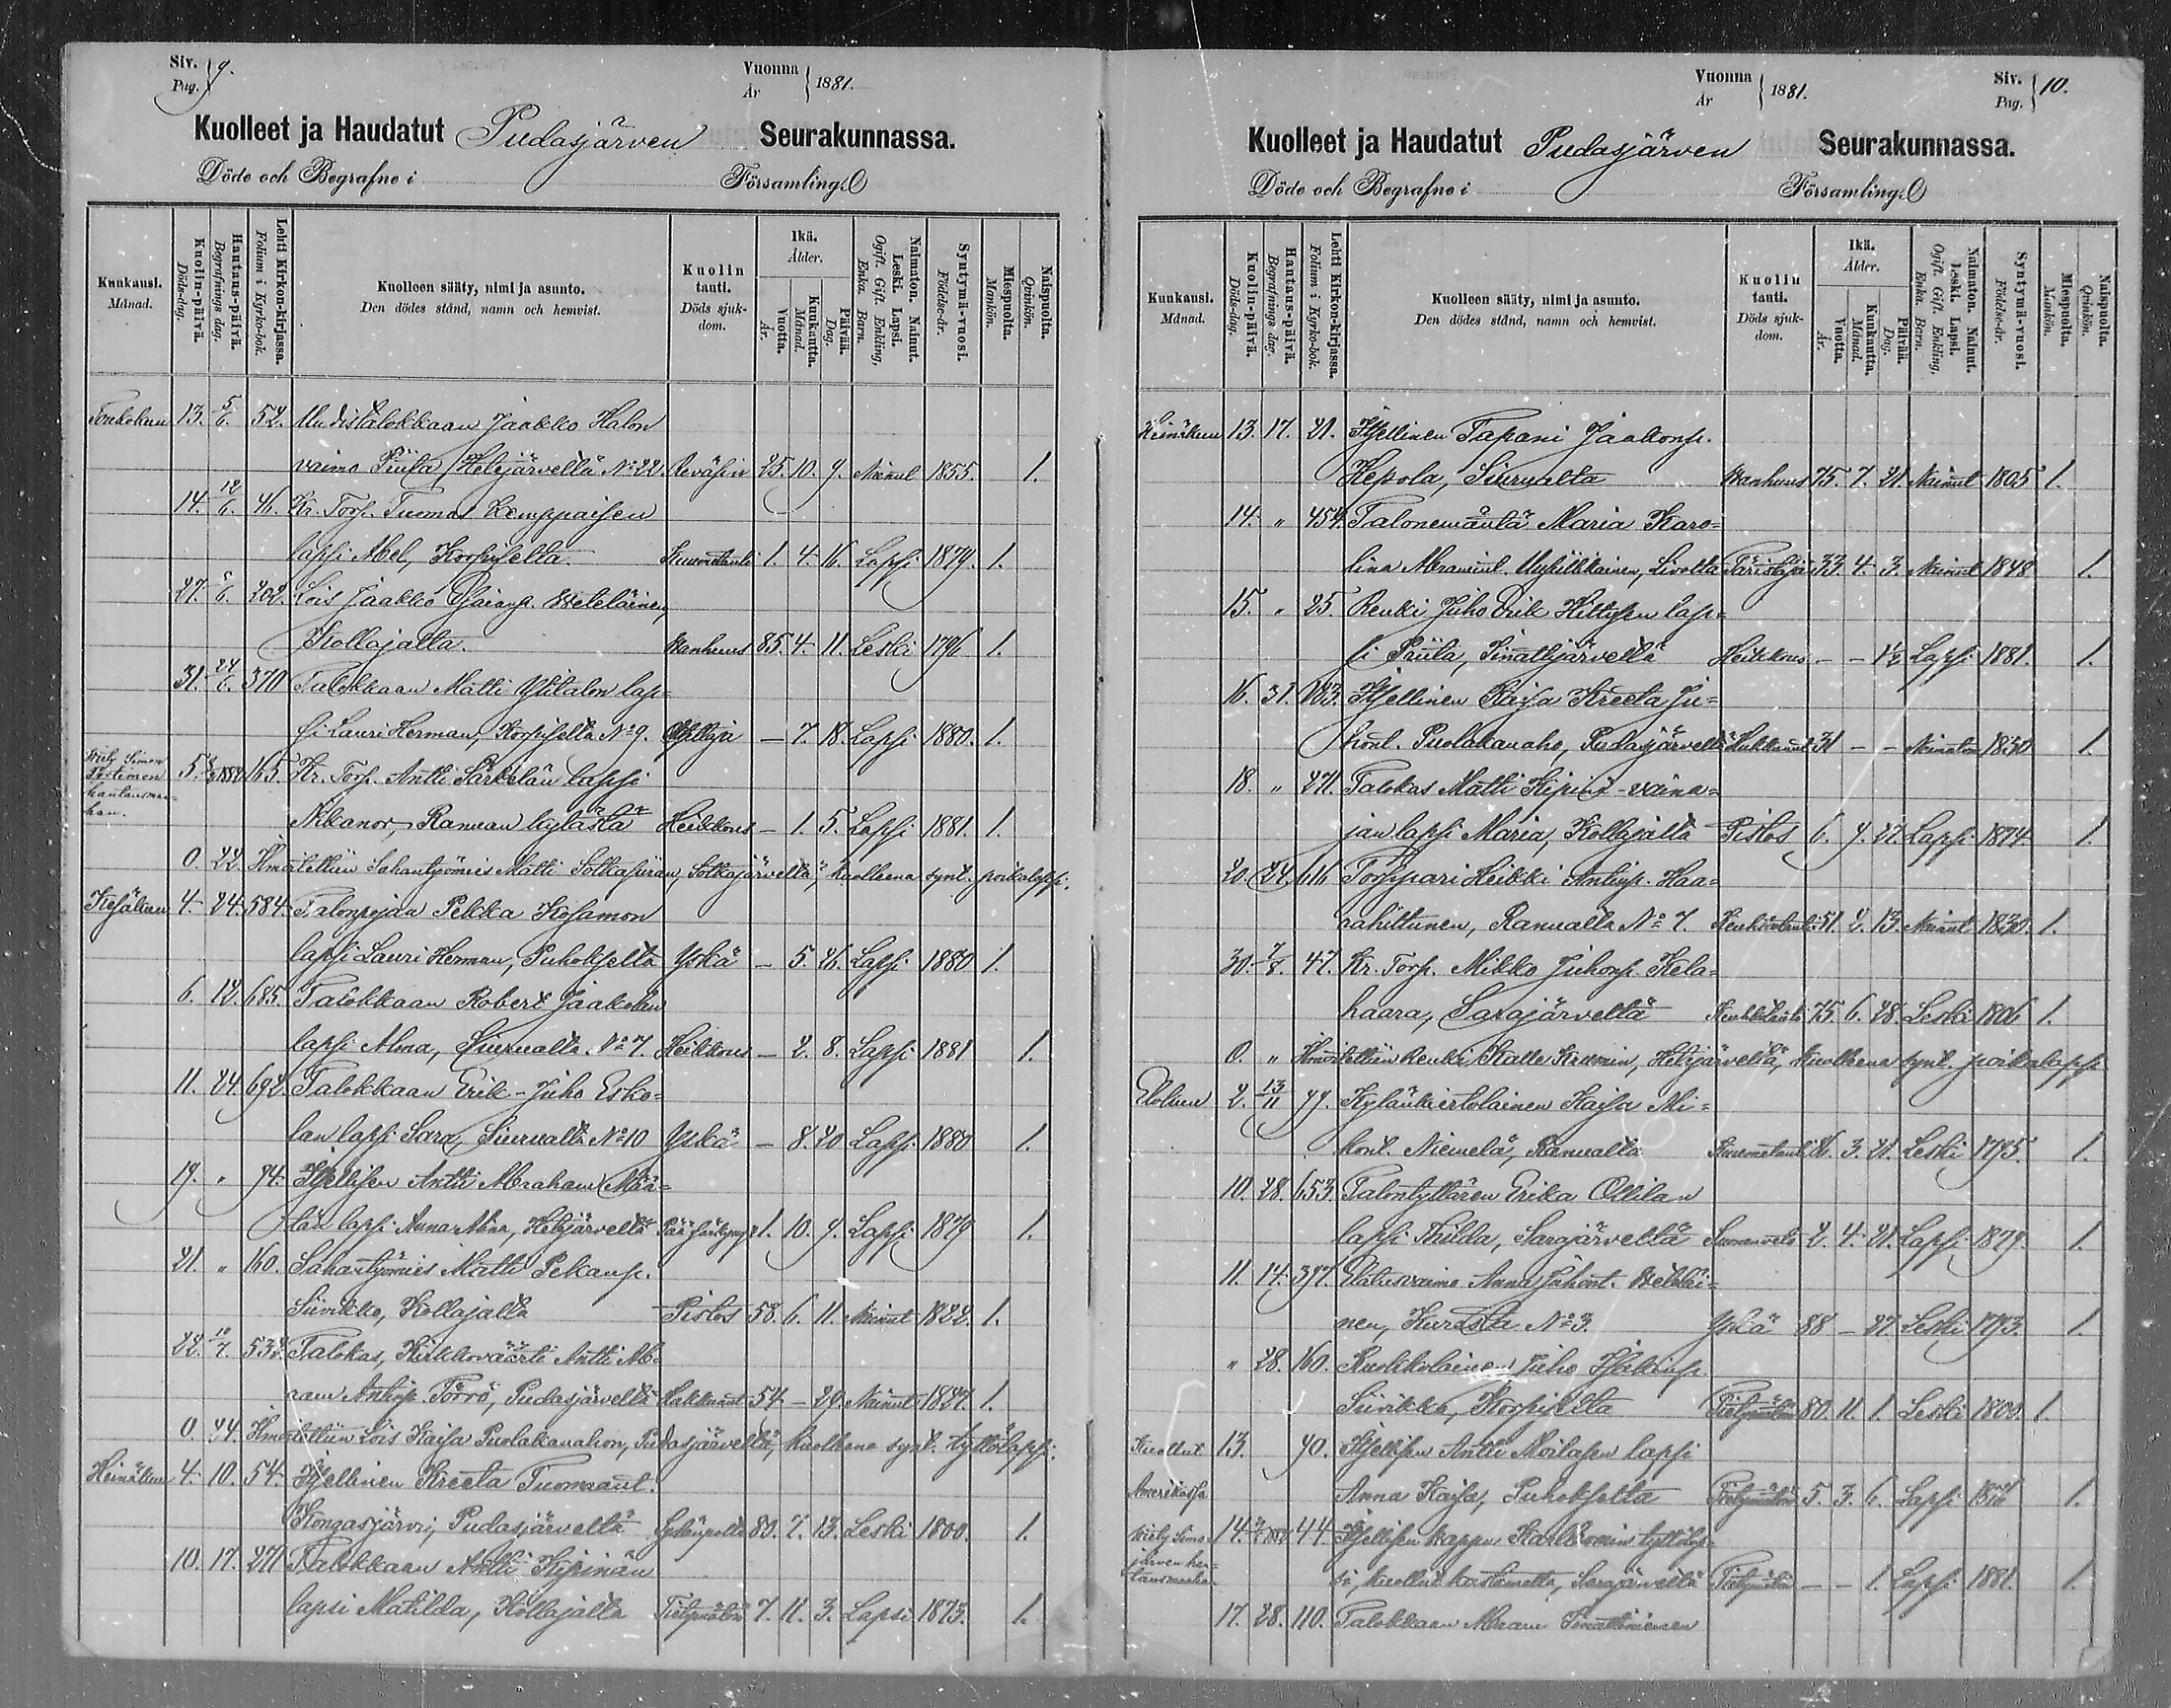 Siv. } 9.
Pag.
Vuonna } 1881.
År
Kuolleet ja Haudatut Pudasjärven Seurakunnassa.
Döde och Begrafne i Församling.
Kuukausi. Månad.
Kuolin-päivä. Döds-dag.
Hautaus-päivä. Begrafnings dag.
Lehti Kirkon-kirjassa. Folium i Kyrko-bok.
Kuolleen sääty, nimi ja asunto.
Den dödes stånd, namn och hemvist.
Kuolin tauti. Döds sjukdom.
Ikä. Ålder.
Vuotta. År.
Kuukautta. Månad.
Päivää. Dag.
Naimaton. Nainut. Leski. Lapsi. Ogift. Gift. Enkling, Enka. Barn.
Syntymä-vuosi. Födelse-år.
Miespuolta. Mankön.
Naispuolta. Qvinkön.
Toukokuu 13. 5/6. 52. Uudistalokkaan Jaakko Halon
vaimo Piita, Hetejärveltä No 22. 25. 10. 9. Nainut 1855. 1.
14. 12/6. 46. Kr. Torp. Tuomas Kemppaisen
lapsi Abel, Korpiselta. Kuumetauti 1. 4. 16. Lapsi 1879. 1.
27. 5/6. 202. Lois Jaakko
Kollajalta. Wanhuus 85. 4. 11. Leski 1796 1.
31. 370 Talokkaan Matti Ylitalon lap-
si Lauri Herman, Korpiselta No 9. — 7. 18. Lapsi 1880. 1.
5. 165. Kr. Torp. Antti Särkelän lapsi
Nikanor, Ranuan kylästä Heikkous — 1. 5. Lapsi 1881. 1.
0. 22. Ilmoitettiin Sahantyömies Matti Sotkasiiran, Sotkajärveltä, kuolleena synt. poikalapsi.
Kesäkuu 4. 24. 584. Talonpojan Pekka Kesamon
lapsi Lauri Herman, Puhokselta Yskä — 5. 26. Lapsi 1880 1.
6. 12. 685. Talokkaan Robert Jaakolan
lapsi Alma, Siurualta No 7. Heikkous — 2. 8. Lapsi 1881 1.
11. 24. 692. Talokkaan Erik-Juho Esko-
lan lapsi Sara, Siurualta No 10 Yskä — 8. 20 Lapsi 1880 1.
19. " 74. Itsellisen Antti Abraham Mää-
tän lapsi Anna Alma, Hetejärveltä 1. 10. 9. Lapsi 1879 1.
21. " 160. Sahantyömies Matti Pekanp.
Siivikko, Kollajalta Pistos 58. 6. 11. Nainut 1822. 1.
22. 10/7. 532. Talokas, Kirkkoväärti Antti Ab-
ram Antinp. Törrö, Pudasjärveltä Hukkunut 54 — 29. Nainut 1827. 1.
0. 24. Ilmoitettiin Lois Kaisa Puolakanahon, Pudasjärveltä, kuolleena synt. tyttölapsi.
Heinäkuu 4. 10. 54. Itsellinen Kreeta Tuomaant.
Kongasjärvi, Pudasjärveltä 80. 7. 13. Leski 1800. 1.
10. 17. 271 Talokkaan Antti Kipinän
lapsi Matilda, Kollajalta 7. 11. 3. Lapsi 1873. 1.
Vuonna } 1881.
År
Siv. } 10.
Pag.
Kuolleet ja Haudatut Pudasjärven Seurakunnassa.
Döde och Begrafne i Församling.
Kuukausi. Månad.
Kuolin-päivä. Döds-dag.
Hautaus-päivä. Begrafnings dag.
Lehti Kirkon-kirjassa. Folium i Kyrko-bok.
Kuolleen sääty, nimi ja asunto.
Den dödes stånd, namn och hemvist.
Kuolin tauti. Döds sjukdom.
Ikä. Ålder.
Vuotta. År.
Kuukautta. Månad.
Päivää. Dag.
Naimaton. Nainut. Leski. Lapsi. Ogift. Gift. Enkling, Enka. Barn.
Syntymä-vuosi. Födelse-år.
Miespuolta. Mankön.
Naispuolta. Qvinkön.
Heinäkuu 13. 17. 21. Itsellinen Tapani Jaakonp.
Kepola, Siurualta Wanhuus 75. 7. 21. Nainut 1805 1.
14. " 454. Talonemäntä Maria Karo-
lina Abramint. Livolta 33. 4. 3. Nainut 1848 1.
15. " 25. Renki Juho Erik Hiltusen lap-
si Priita, Sinattijärveltä Heikkous — — 1½ Lapsi 1881. 1.
16. 31. 183. Itsellinen Kaisa Kreeta Ju-
hont. Puolakanaho, Pudasjärveltä Hukkunut 31 — — Naimaton 1850 1.
18. " 271. Talokas Matti Kipinä-vaina-
jan lapsi Maria, Kollajalta Pistos 6. 9. 27. Lapsi 1874. 1.
20. 24. 616 Torppari Heikki Antinp. Haa-
rahiltunen, Ranualla No 7. 51. 2. 13. Nainut 1830. 1.
30. 7/8. 47. Kr. Torp. Mikko Juhonp. Kela-
haara, Sarajärveltä 75. 6. 28. Leski 1806 1.
0. " Ilmoitettiin Renki Kalle Hetejärveltä, kuolleena synt. poikalapsi
Elokuu 2. 13/11 99. Kylänkiertolainen Kaisa Mi-
kont. Niemelä, Ranualta Kuumetauti 86. 3. 21. Leski 1795. 1.
10. 28. 653. Talontyttären Erika Ollilan
lapsi Hilda, Sarajärveltä 2. 4. 21. Lapsi 1879. 1.
11. 14. 397. Elatusvaimo Anna Juhont. Weteläi-
nen, Kuresta No 3. Yskä 88 — 27. Leski 1793. 1.
" 28. 160. Ruotilainen Juho
Siivikko, Korpiselta 80. 11. 1. Leski 1800. 1.
Kuollut 13. 90. Itsellisen Antti Moilasen lapsi
Amerikassa Anna Kaisa, Puhokselta 5. 3. 6. Lapsi 1876 1.
14. 44. Itsellisen
si, kuollut kastamatta, Sarajärveltä — — 1. Lapsi 1881. 1.
17. 28. 110. Talokkaan Abram